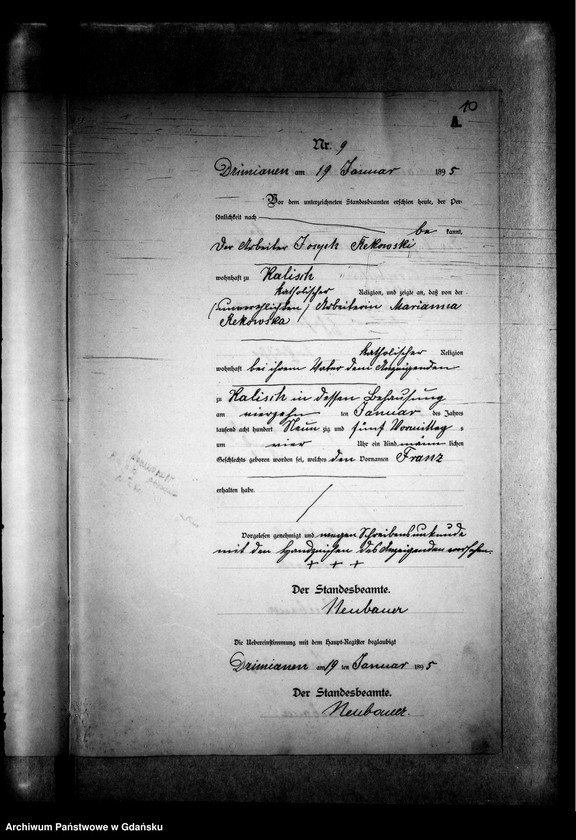 10
A.
Nr. 9
Drimianen am 19 Januar 1895
Vor dem unterzeichneten Standesbeamten erschien heute, der Per-
sönlichkeit nach
be kannt,
der Arbeiter Joseph Rekowski
wohnhaft zu Kalisch
katholischer Religion, und zeigte an, daß von der
(unverehelichten) Arbeiterin Marianna
Rekowska
katholischer Religion
wohnhaft bei ihrem Vater dem Anzeigenden
zu Kalisch in dessen Behausung
am vierzehn ten Januar des Jahres
tausend acht hundert Neun zig und fünf Vormittag s
um vier Uhr ein Kind männ lichen
Geschlechts geboren worden sei, welches den Vornamen Franz
erhalten habe.
Vorgelesen genehmigt und wegen Schreibensunkunde
mit den Handzeichen des Anzeigenden versehen.
+ + +
Der Standesbeamte.
Neubauer
Die Uebereinstimmung mit dem Haupt-Register beglaubigt
Drimianen am 19 ten Januar 1895
Der Standesbeamte.
Neubauer.
Archiwum Państwowe w Gdańsku